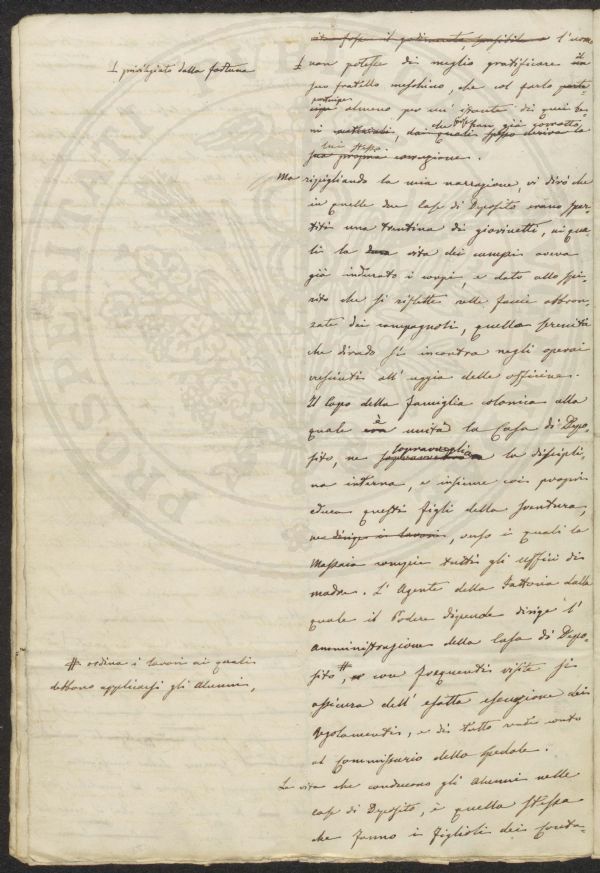 l'uomo
⊥ privilegiato dalla fortuna
⊥ non potesse di meglio gratificare il
suo fratello meschino, che col farlo parte-
cipe almeno per un istante di quei be-
ni materiali, dai quali spesso deriva la
sua propria corruzione.
Ma ripigliando la mia narrazione, vi dirò che
in quelle due Case di Deposito erano spar-
titi una trentina di giovinetti, ai qua-
li la dura vita dei campi aveva
già indurato i corpi, e dato allo spi-
rito che si riflette nelle faccie abbron-
zate dei campagnoli, quella serenità
che di rado si incontra negli operai
cresciuti all'uggia delle officine.
Il Capo della famiglia colonica alla
quale è unita la Casa di Depo-
sito, ne sopravveglia la discipli-
na interna, e insieme coi propri
educa questi figli della sventura,
verso i quali la
Massaia compie tutti gli uffici di
madre. L'Agente della Fattoria dalla
quale il Podere dipende dirige l'
amministrazione della Casa di Depo-
sito #, con frequenti visite si
# ordina i lavori ai quali
debbono applicarsi gli Alunni,
assicura dell'esatta esecuzione dei
Regolamenti, e di tutto rende conto
al Commissario dello Spedale.
La vita che conducono gli Alunni nelle
case di Deposito, è quella stessa
che fanno i figlioli dei Conta-
PROSPERI NATI